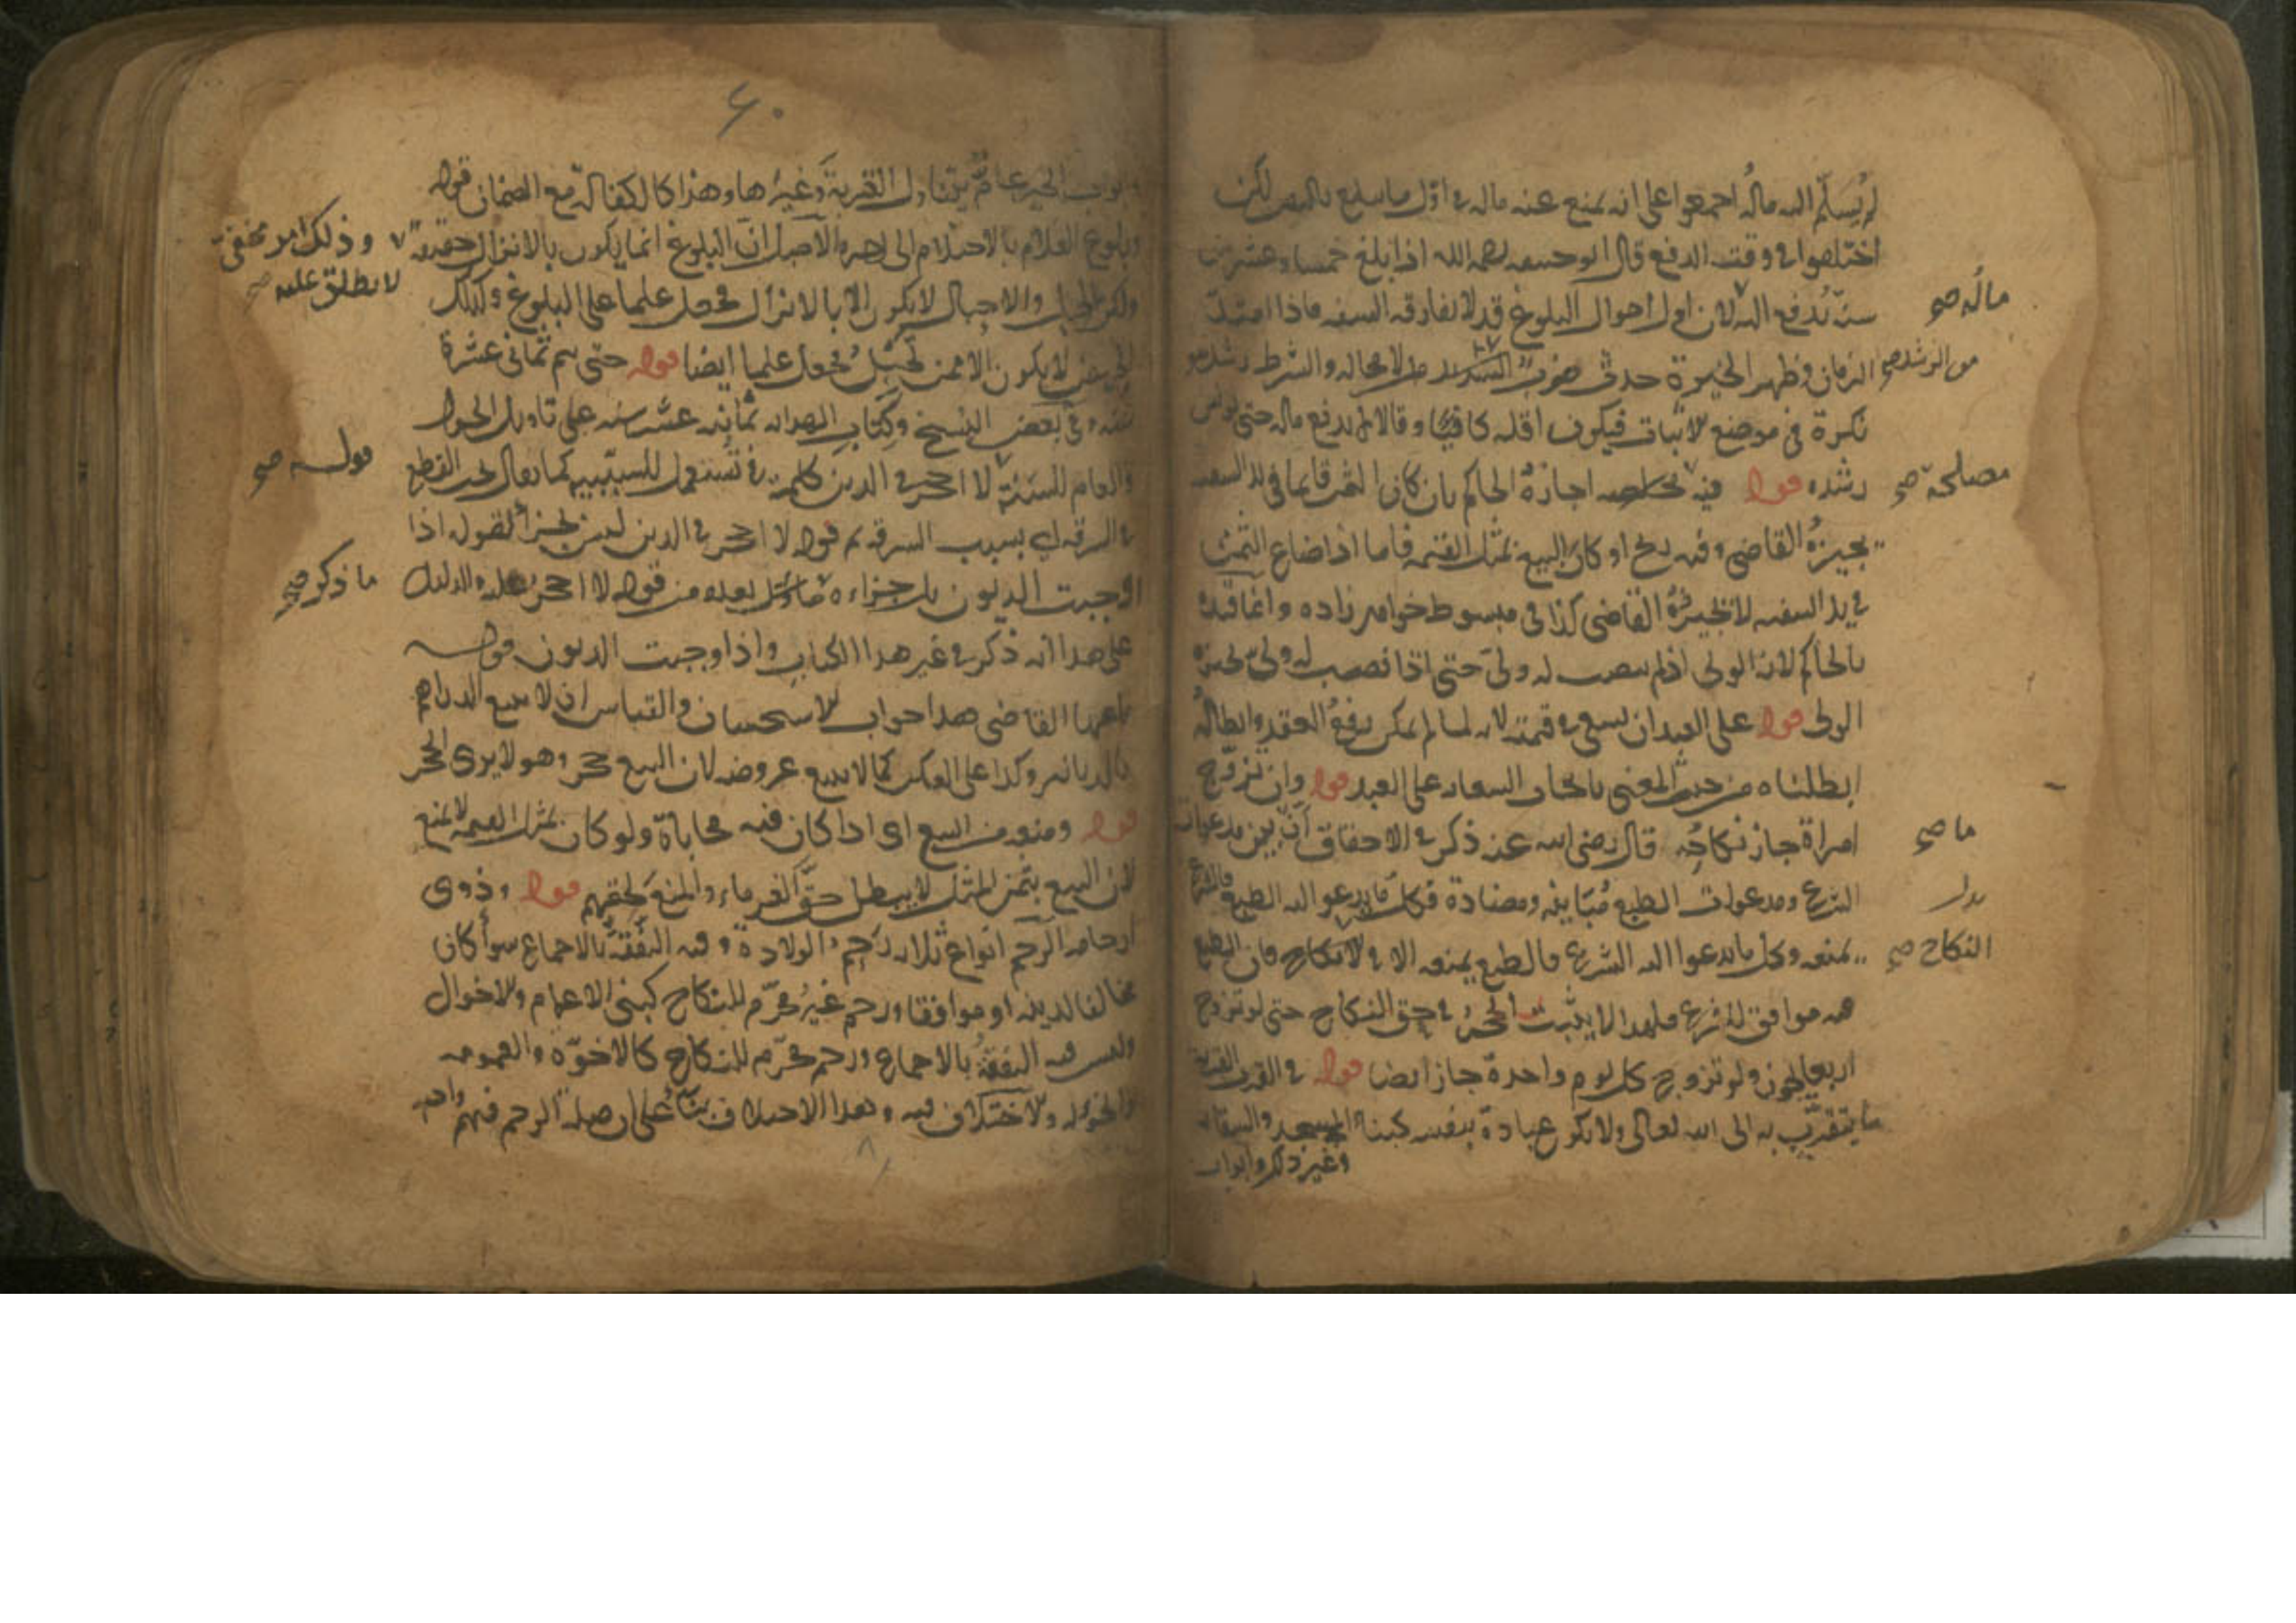 لم يُسَلَّم اليه ماله اجمعوا على انه يمنع عنه ماله في اول ما يبلغ بالسفه لكن
اختلفوا في وقت الدفع قال ابو حنيفه رحمه الله اذا بلغ خمسا وعشرين
سنة يُدفع اليه لان اول احوال البلوغ قد لا يفارقه السفه فاذا امتدّ
ماله صح
الزمان وظهر الخبرة حدث ضرب لا محاله والشرط رشد هو
من الرشد صح
نكرة في موضع الاثبات فيكون اقله كافيا وقالا لم يدفع ماله حتى يونس
رشده قوله فيه اجازة الحاكم بان كان الثمن قايما في يد السفيه
مصلحة صح
يجيزه القاضي وفيه ربح او كان البيع بمثل القيمه فاما اذا ضاع الثمن
في يد السفيه لا يجيزه القاضي كذا في مبسوط خواهر زاده وانما قيده
بالحاكم لان الولي اذ لم ينصب له ولي حتى اذا نصب له ولي يجيزه
الولي قوله على العبد ان يسعى في قيمته لانه لما لم يمكن رفع العقد وابطاله
ابطلناه من حيث المعنى بايجاب السعايه على العبد قوله وان تزوج
امراة جاز نكاحه قال رضي الله عنه ذكر في الاحقاق ان بين مدعوات
ما صح
الشرع ومدعوات الطبع مُبَاينه ومضادة فكل ما يدعو اليه الطبع فالشرع
يمنعه وكل ما يدعوا اليه الشرع فالطبع يمنعه الا في النكاح فان الطبع
النكاح صح
فيه موافق للشرع فلهذا لا يثبت الحجر في حق النكاح حتى لو تزوج
اربعا يجوز ولو تزوج كل يوم واحدة جاز ايضا قوله في القرب القربة
ما يتقرّب به الى الله تعالى ولا يكون عبادة بنفسه كبناء المسجد والسقاية
وغير ذلك وابواب
٦٠
ابواب الخير عامّ يتناول القربة وغيرها وهذا كالكفالة مع الضمان قوله
وبلوغ الغلام بالاحتلام الى اخره الاصل ان البلوغ انما يكون بالانزال حقيقة
وذلك امر مخفيّ
لا يطلق عليه صح
ولكن الحبل والاحبال لا يكون الا بالانزال فجعل علما على البلوغ وكذلك
الحيض لا يكون الا ممن تحبل فجعل علما ايضا قوله حتى يتم ثماني عشرة
سنه وفي بعض النسخ وكتاب الهدايه ثمانيه عشر سنه على تاويل الحول
والعام للسنة لا احجر في الدين كلمة في تستعمل للسببيه كما يقال يجب القطع
قوله صح
في السرقه اي بسبب السرقه ثم قوله لا احجر في الدين ليس بجزاء لقوله اذا
وجبت الديون بل جزاءه ما بعده من قوله لا احجر عليه والدليل
ما ذكر صح
على هذا انه ذكر في غير هذا الكتاب واذا وجبت الديون قوله
باعها القاضي هذا جواب الاستحسان والقياس ان لا يبيع الدراهم
بالدنانير وكذا على العكس كما لا يبيع عروضه لان البيع حجر وهو لا يرى الحجر
قوله ومنعه من البيع اى اذا كان فيه محاباة ولو كان بمثل القيمه لا يمنع
لان البيع بثمن المثل لا يبطل حق الغرماء والمنع لحقهم قوله وذوى
ارحامه الرحم انواع ثلاثه رحم الولادة وفيه النفقة بالاجماع سوأ كان
مخالفا لدينه او موافقا ورحم غير محرّم للنكاح كبنى الاعمام والاخوال
وليس فيه النفقة بالاجماع ورحم محرّم للنكاح كالاخوّة والعمومه
والخؤله والاختلاف فيه وهذا الاختلاف بناءً على ان صلة الرحم فيهم واجبه